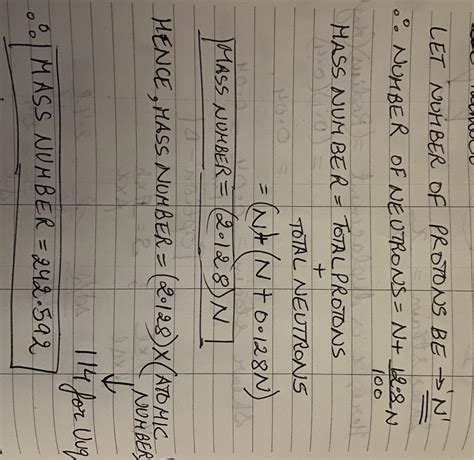 LET NUMBER OF PROTONS BE → 'N'
∴ NUMBER OF NEUTRONS = N + 12.8/100 N
MASS NUMBER = TOTAL PROTONS
+
TOTAL NEUTRONS
= (N) + (N + 0.128N)
MASS NUMBER = (2.128) N
HENCE, MASS NUMBER = (2.128) × (ATOMIC NUMBER)
↓
114 for Uuq
∴ MASS NUMBER = 242.592